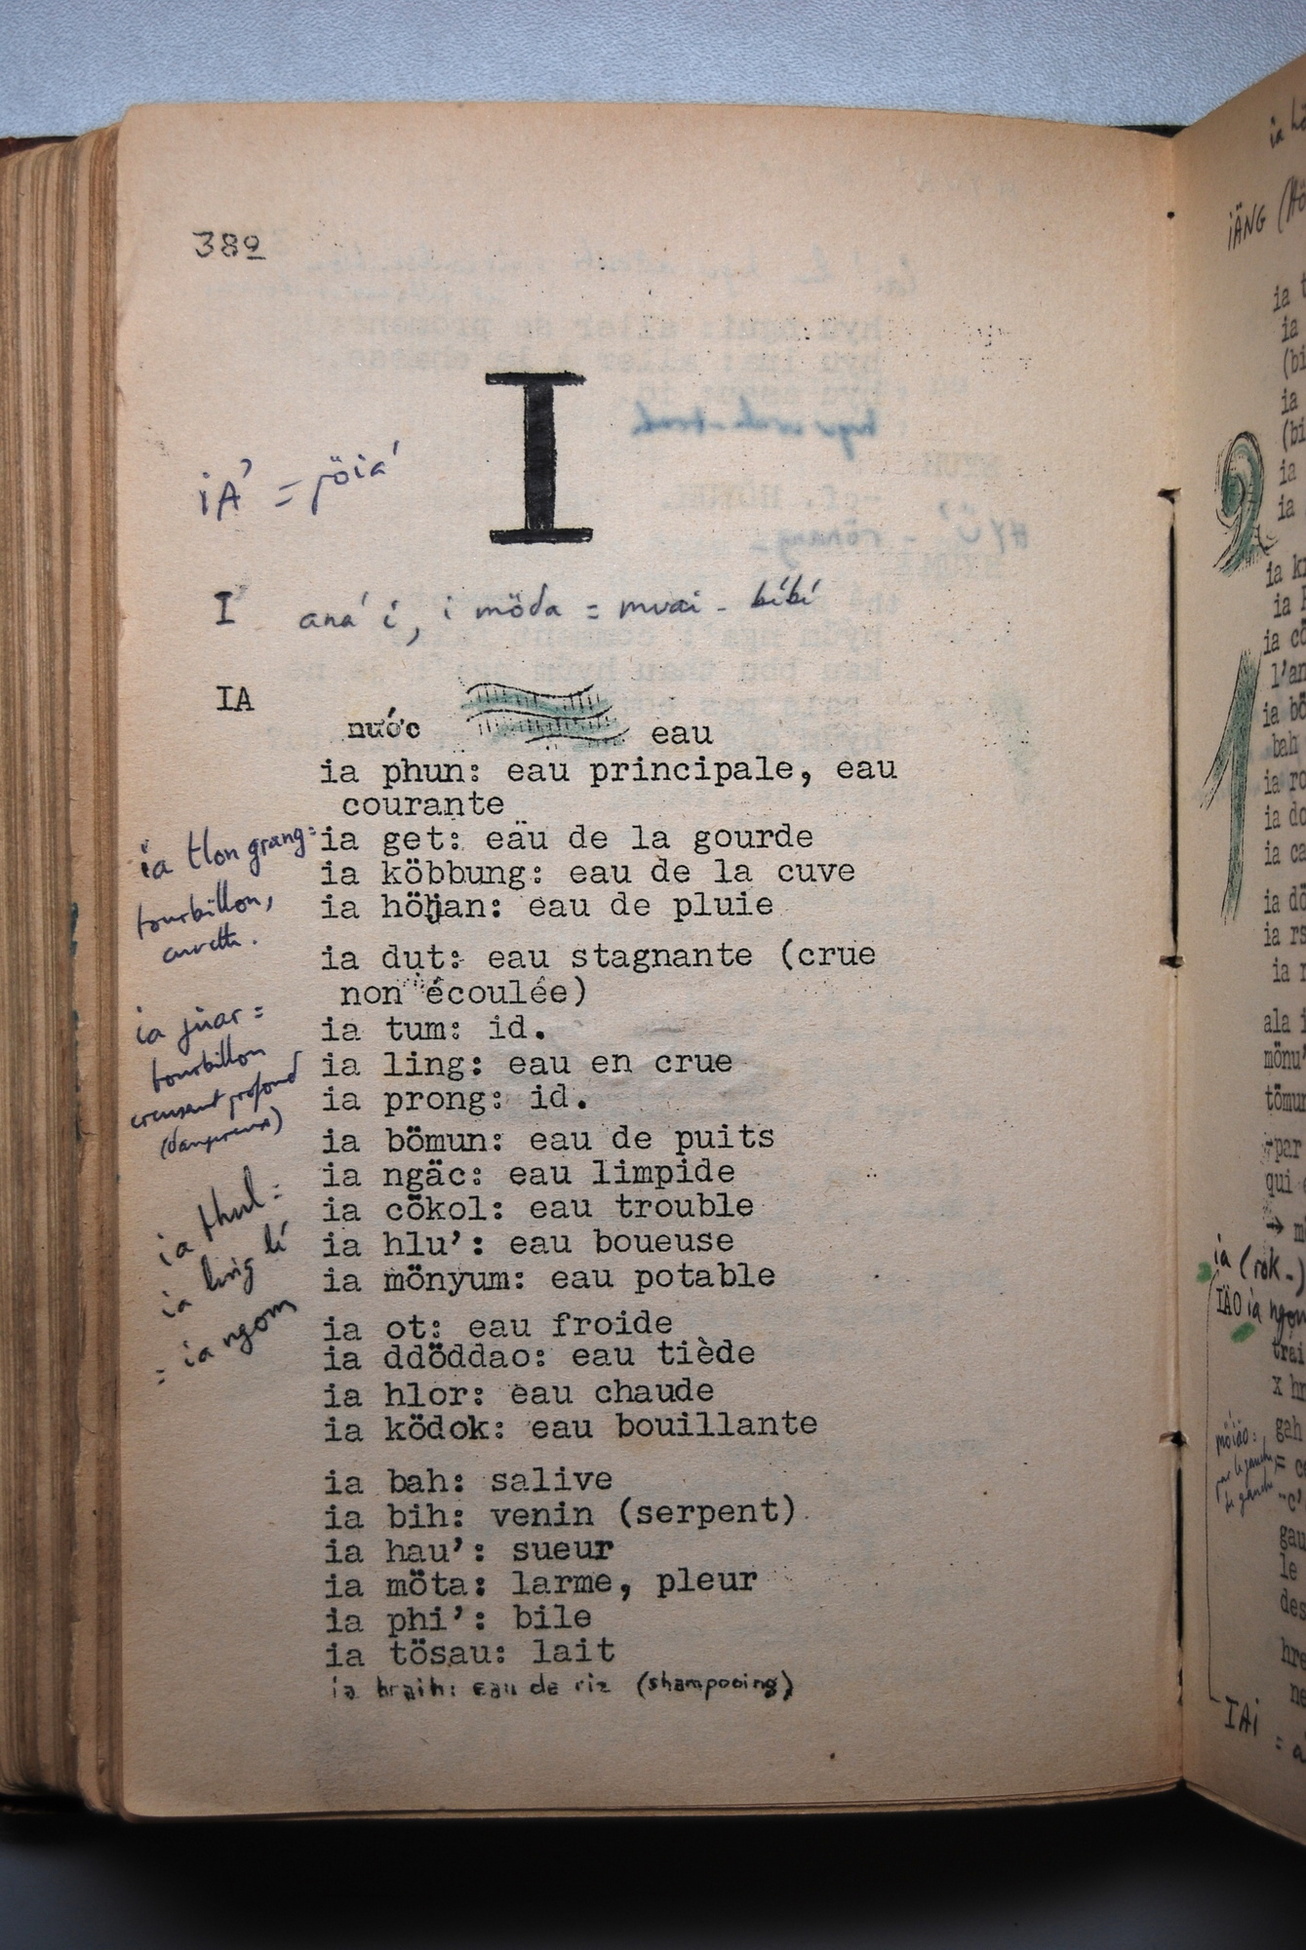 389
I
iA' = röia'
I' aná i, i möda = muai - bíbí
IA
nước eau
ia phun: eau principale, eau
courante
ia get: eau de la gourde
ia köbbung: eau de la cuve
ia höjan: eau de pluie
ia dut: eau stagnante (crue
non écoulée)
ia tum: id.
ia ling: eau en crue
ia prong: id.
ia bömun: eau de puits
ia ngäc: eau limpide
ia cökol: eau trouble
ia hlu': eau boueuse
ia mönyum: eau potable
ia ot: eau froide
ia ddöddao: eau tiède
ia hlor: eau chaude
ia ködok: eau bouillante
ia bah: salive
ia bih: venin (serpent).
ia hau': sueur
ia möta: larme, pleur
ia phi': bile
ia tösau: lait
ia braih: eau de riz (shampooing)
ia tlon grang =
tourbillon,
ia juar =
tourbillon
creusant profond
(dangereux)
ia thul =
ia ling lí
= ia ngom
iÄNG
ia
(bi
ia
(bi
ia
ia
ia
l'an
ia bö
bah
ia ro
ia do
ia ca
ia dö
ia rs
ala i
mönu'
tömun
-par
qui
ia (rok-)
IÄO ia ngom
trai
gah
möiäo:
gau
le
des
IAi